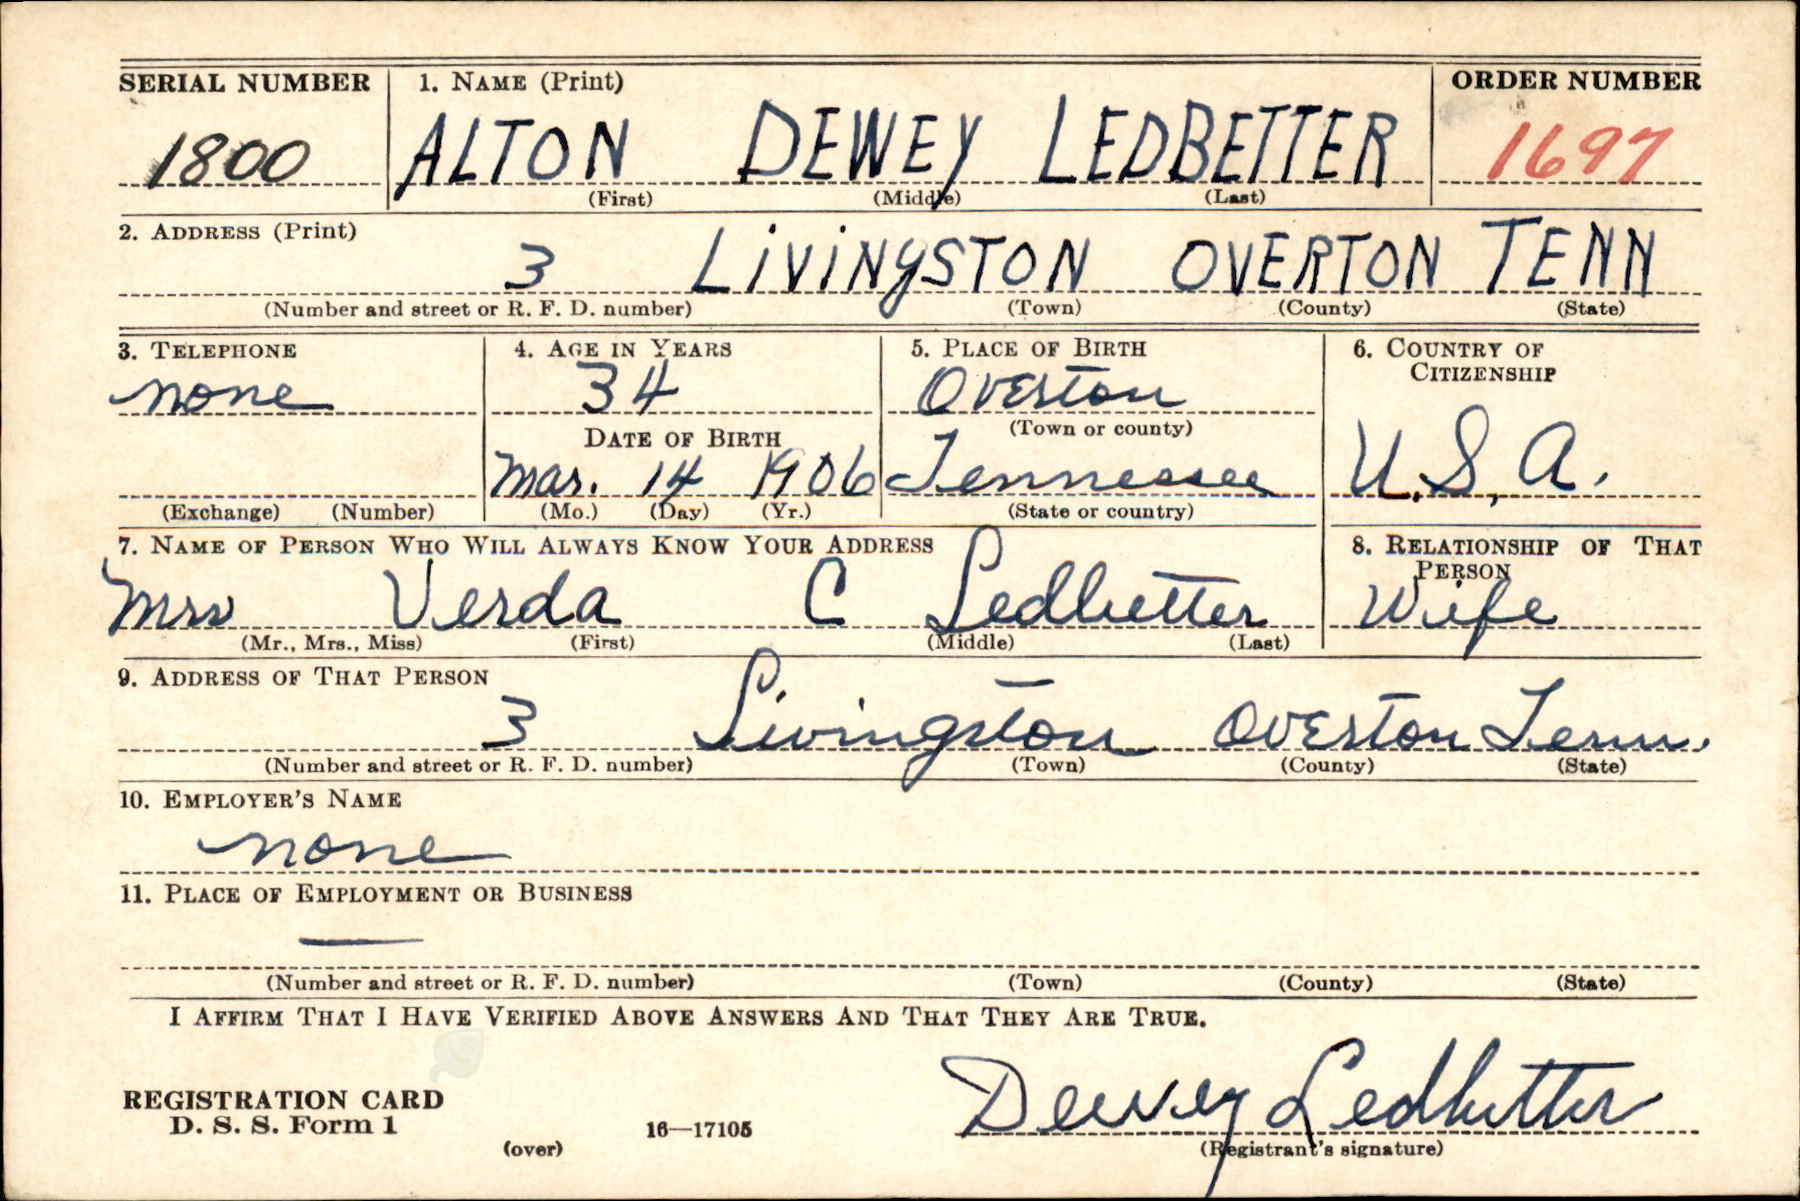 SERIAL NUMBER 1. NAME (Print) ORDER NUMBER
1800 ALTON DEWEY LEDBETTER 1697
(First) (Middle) (Last)
2. ADDRESS (Print)
3 LiViNgSTON OVERTON TENN
(Number and street or R. F. D. number) (Town) (County) (State)
3. TELEPHONE 4. AGE IN YEARS 5. PLACE OF BIRTH 6. COUNTRY OF CITIZENSHIP
none 34 Overton
DATE OF BIRTH (Town or county)
Mar. 14 1906 Tennessee U.S.A.
(Exchange) (Number) (Mo.) (Day) (Yr.) (State or country)
7. NAME OF PERSON WHO WILL ALWAYS KNOW YOUR ADDRESS 8. RELATIONSHIP OF THAT PERSON
Mrs Verda C Ledbetter Wife
(Mr., Mrs., Miss) (First) (Middle) (Last)
9. ADDRESS OF THAT PERSON
3 Livingston Overton Tenn.
(Number and street or R. F. D. number) (Town) (County) (State)
10. EMPLOYER'S NAME
none
11. PLACE OF EMPLOYMENT OR BUSINESS
—
(Number and street or R. F. D. number) (Town) (County) (State)
I AFFIRM THAT I HAVE VERIFIED ABOVE ANSWERS AND THAT THEY ARE TRUE.
REGISTRATION CARD
D. S. S. Form 1
(over)
16—17105
Dewey Ledbetter
(Registrant's signature)